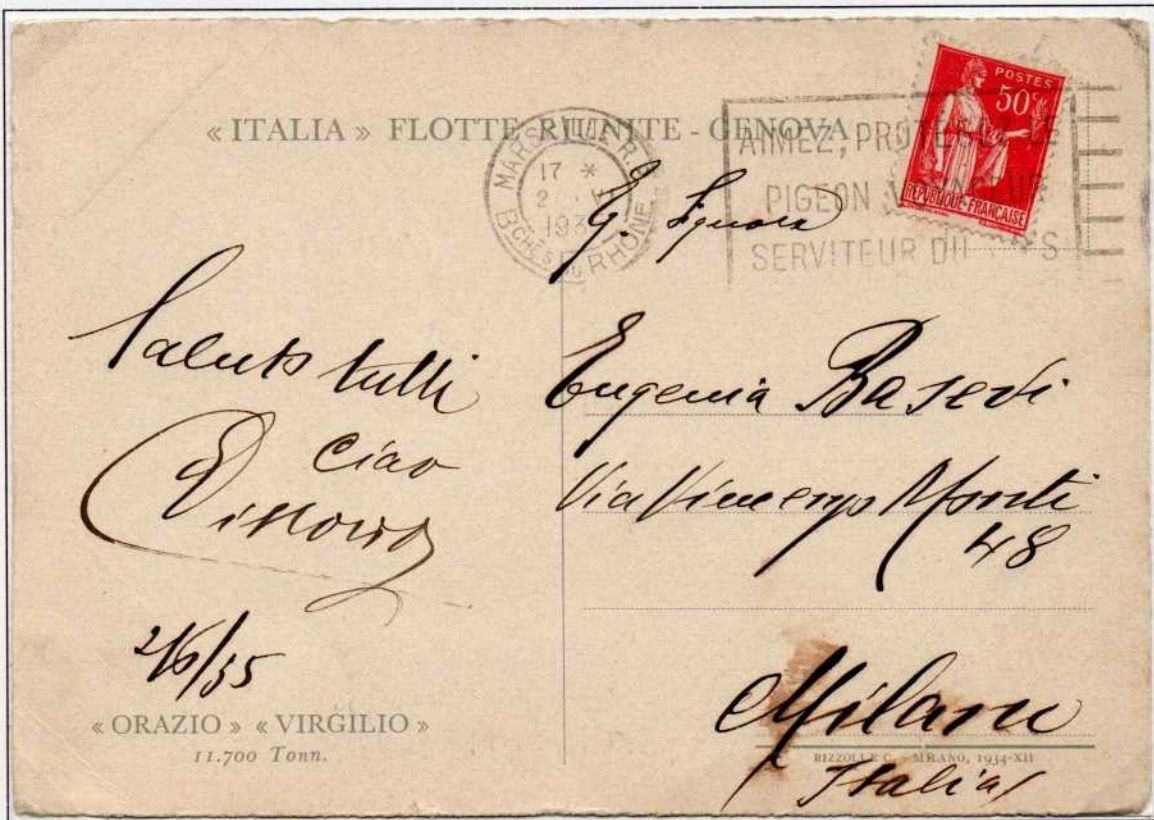 « ITALIA » FLOTTE RIUNITE - GENOVA
MARSEILLE R.
17 *
2
193
Bches DU RHONE
AIMEZ, PROTEGEZ LE
PIGEON
SERVITEUR DU
POSTES
50c
REPUBLIQUE FRANÇAISE
G. Signora
Eugenia Basevi
Via Vincenzo Monti
48
Milano
Italia
Saluto tutti
Ciao
2/6/35
« ORAZIO » « VIRGILIO »
11.700 Tonn.
RIZZOLI E C. - MILANO, 1934-XII